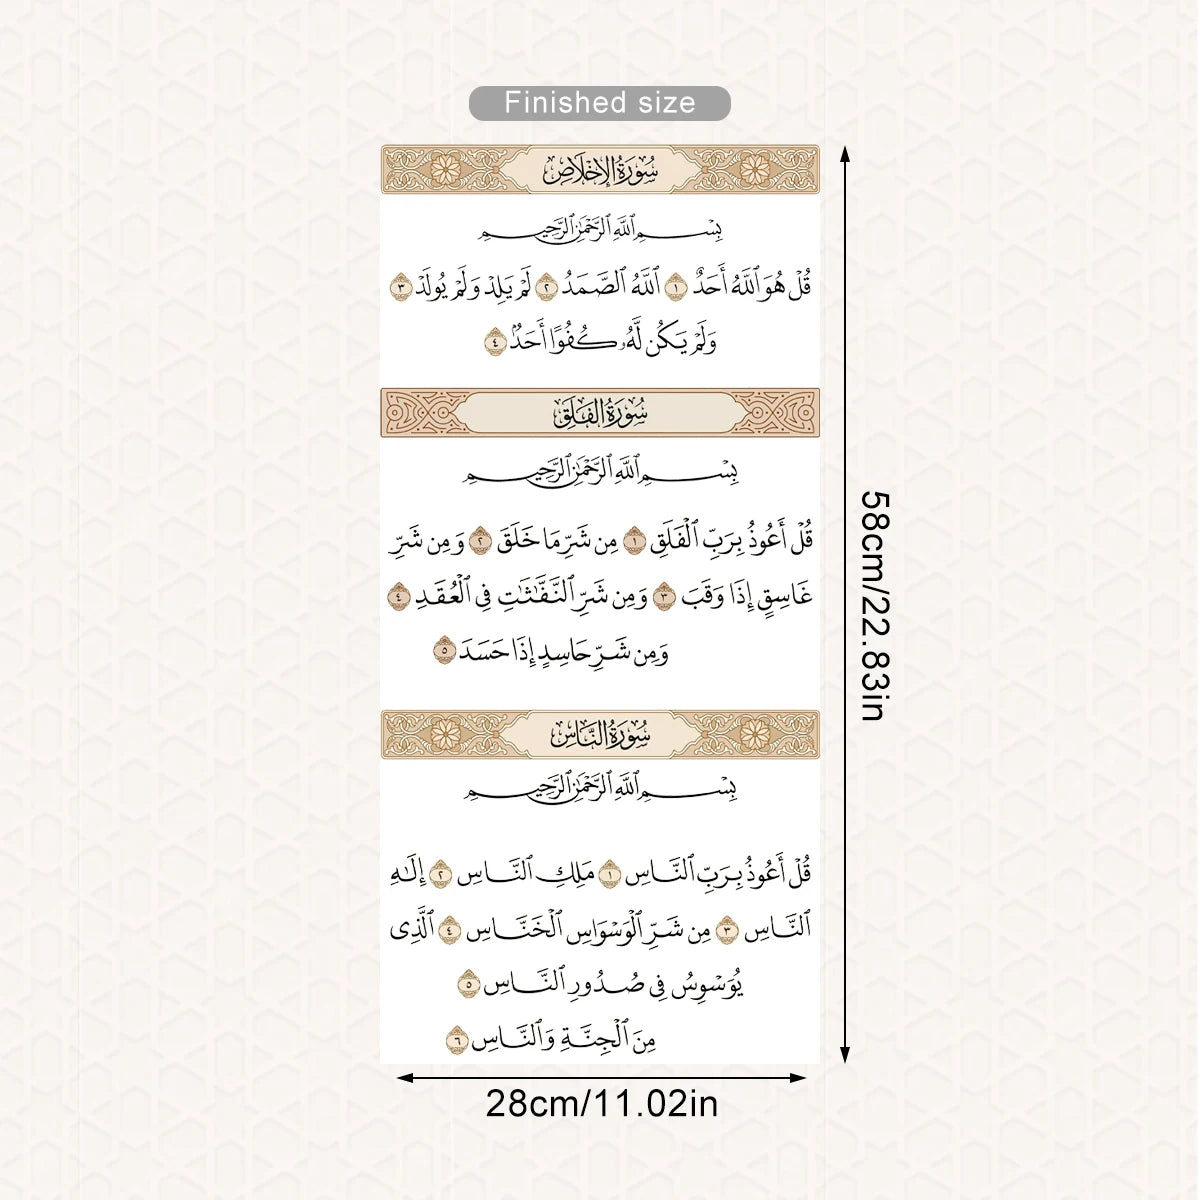 Finished size
سُورَةُ الإِخْلَاصِ
بِسْمِ ٱللَّهِ ٱلرَّحْمَٰنِ ٱلرَّحِيمِ
قُلْ هُوَ ٱللَّهُ أَحَدٌ ١ ٱللَّهُ ٱلصَّمَدُ ٢ لَمْ يَلِدْ وَلَمْ يُولَدْ ٣
وَلَمْ يَكُن لَّهُۥ كُفُوًا أَحَدٌۢ ٤
سُورَةُ الفَلَقِ
بِسْمِ ٱللَّهِ ٱلرَّحْمَٰنِ ٱلرَّحِيمِ
قُلْ أَعُوذُ بِرَبِّ ٱلْفَلَقِ ١ مِن شَرِّ مَا خَلَقَ ٢ وَمِن شَرِّ
غَاسِقٍ إِذَا وَقَبَ ٣ وَمِن شَرِّ ٱلنَّفَّٰثَٰتِ فِى ٱلْعُقَدِ ٤
وَمِن شَرِّ حَاسِدٍ إِذَا حَسَدَ ٥
سُورَةُ النَّاسِ
بِسْمِ ٱللَّهِ ٱلرَّحْمَٰنِ ٱلرَّحِيمِ
قُلْ أَعُوذُ بِرَبِّ ٱلنَّاسِ ١ مَلِكِ ٱلنَّاسِ ٢ إِلَٰهِ
ٱلنَّاسِ ٣ مِن شَرِّ ٱلْوَسْوَاسِ ٱلْخَنَّاسِ ٤ ٱلَّذِى
يُوَسْوِسُ فِى صُدُورِ ٱلنَّاسِ ٥
مِنَ ٱلْجِنَّةِ وَٱلنَّاسِ ٦
58cm/22.83in
28cm/11.02in